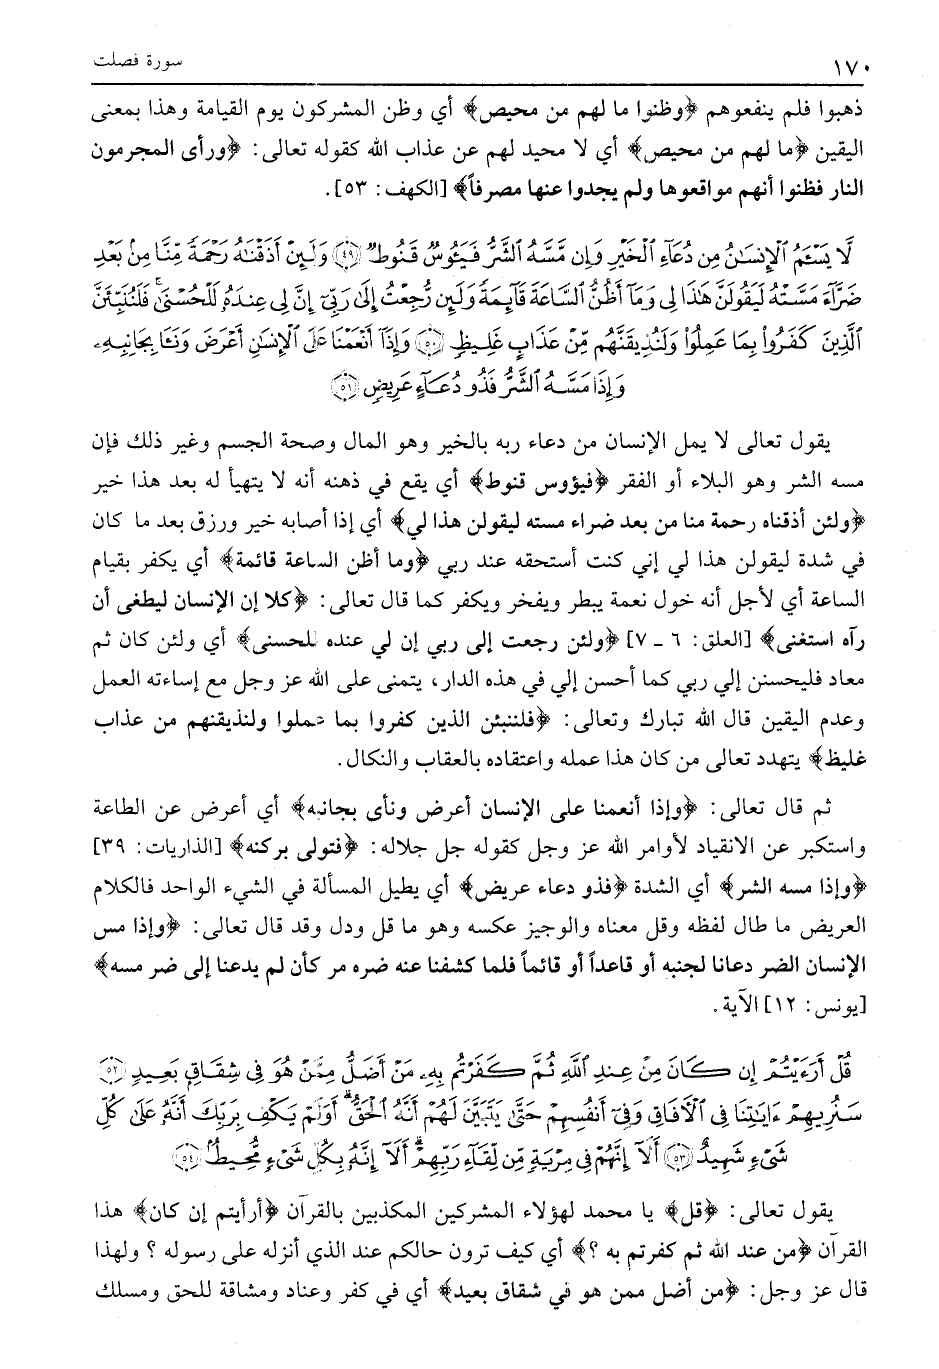 ١٧٠ سورة فصلت
ذهبوا فلم ينفعوهم ﴿وظنوا ما لهم من محيص﴾ أي وظن المشركون يوم القيامة وهذا بمعنى
اليقين ﴿ما لهم من محيص﴾ أي لا محيد لهم عن عذاب الله كقوله تعالى: ﴿ورأى المجرمون
النار فظنوا أنهم مواقعوها ولم يجدوا عنها مصرفاً﴾ [الكهف: ٥٣].
لَّا يَسْـَٔمُ ٱلْإِنسَـٰنُ مِن دُعَآءِ ٱلْخَيْرِ وَإِن مَّسَّهُ ٱلشَّرُّ فَيَـُٔوسٌ قَنُوطٌ ﴿٤٩﴾ وَلَئِنْ أَذَقْنَـٰهُ رَحْمَةً مِّنَّا مِنۢ بَعْدِ
ضَرَّآءَ مَسَّتْهُ لَيَقُولَنَّ هَـٰذَا لِى وَمَآ أَظُنُّ ٱلسَّاعَةَ قَآئِمَةً وَلَئِن رُّجِعْتُ إِلَىٰ رَبِّىٓ إِنَّ لِى عِندَهُۥ لَلْحُسْنَىٰ ۚ فَلَنُنَبِّئَنَّ
ٱلَّذِينَ كَفَرُوا۟ بِمَا عَمِلُوا۟ وَلَنُذِيقَنَّهُم مِّنْ عَذَابٍ غَلِيظٍ ﴿٥٠﴾ وَإِذَآ أَنْعَمْنَا عَلَى ٱلْإِنسَـٰنِ أَعْرَضَ وَنَـَٔا بِجَانِبِهِۦ
وَإِذَا مَسَّهُ ٱلشَّرُّ فَذُو دُعَآءٍ عَرِيضٍ ﴿٥١﴾
يقول تعالى لا يمل الإنسان من دعاء ربه بالخير وهو المال وصحة الجسم وغير ذلك فإن
مسه الشر وهو البلاء أو الفقر ﴿فيؤوس قنوط﴾ أي يقع في ذهنه أنه لا يتهيأ له بعد هذا خير
﴿ولئن أذقناه رحمة منا من بعد ضراء مسته ليقولن هذا لي﴾ أي إذا أصابه خير ورزق بعد ما كان
في شدة ليقولن هذا لي إني كنت أستحقه عند ربي ﴿وما أظن الساعة قائمة﴾ أي يكفر بقيام
الساعة أي لأجل أنه خول نعمة يبطر ويفخر ويكفر كما قال تعالى: ﴿كلا إن الإنسان ليطغى أن
رآه استغنى﴾ [العلق: ٦ ـ ٧] ﴿ولئن رجعت إلى ربي إن لي عنده للحسنى﴾ أي ولئن كان ثم
معاد فليحسنن إلي ربي كما أحسن إلي في هذه الدار، يتمنى على الله عز وجل مع إساءته العمل
وعدم اليقين قال الله تبارك وتعالى: ﴿فلننبئن الذين كفروا بما عملوا ولنذيقنهم من عذاب
غليظ﴾ يتهدد تعالى من كان هذا عمله واعتقاده بالعقاب والنكال.
ثم قال تعالى: ﴿وإذا أنعمنا على الإنسان أعرض ونأى بجانبه﴾ أي أعرض عن الطاعة
واستكبر عن الانقياد لأوامر الله عز وجل كقوله جل جلاله: ﴿فتولى بركنه﴾ [الذاريات: ٣٩]
﴿وإذا مسه الشر﴾ أي الشدة ﴿فذو دعاء عريض﴾ أي يطيل المسألة في الشيء الواحد فالكلام
العريض ما طال لفظه وقل معناه والوجيز عكسه وهو ما قل ودل وقد قال تعالى: ﴿وإذا مس
الإنسان الضر دعانا لجنبه أو قاعداً أو قائماً فلما كشفنا عنه ضره مر كأن لم يدعنا إلى ضر مسه﴾
[يونس: ١٢] الآية.
قُلْ أَرَءَيْتُمْ إِن كَانَ مِنْ عِندِ ٱللَّهِ ثُمَّ كَفَرْتُم بِهِۦ مَنْ أَضَلُّ مِمَّنْ هُوَ فِى شِقَاقٍۭ بَعِيدٍ ﴿٥٢﴾
سَنُرِيهِمْ ءَايَـٰتِنَا فِى ٱلْـَٔافَاقِ وَفِىٓ أَنفُسِهِمْ حَتَّىٰ يَتَبَيَّنَ لَهُمْ أَنَّهُ ٱلْحَقُّ ۗ أَوَلَمْ يَكْفِ بِرَبِّكَ أَنَّهُۥ عَلَىٰ كُلِّ
شَىْءٍ شَهِيدٌ ﴿٥٣﴾ أَلَآ إِنَّهُمْ فِى مِرْيَةٍ مِّن لِّقَآءِ رَبِّهِمْ ۗ أَلَآ إِنَّهُۥ بِكُلِّ شَىْءٍ مُّحِيطٌۢ ﴿٥٤﴾
يقول تعالى: ﴿قل﴾ يا محمد لهؤلاء المشركين المكذبين بالقرآن ﴿أرأيتم إن كان﴾ هذا
القرآن ﴿من عند الله ثم كفرتم به ؟﴾ أي كيف ترون حالكم عند الذي أنزله على رسوله ؟ ولهذا
قال عز وجل: ﴿من أضل ممن هو في شقاق بعيد﴾ أي في كفر وعناد ومشاقة للحق ومسلك